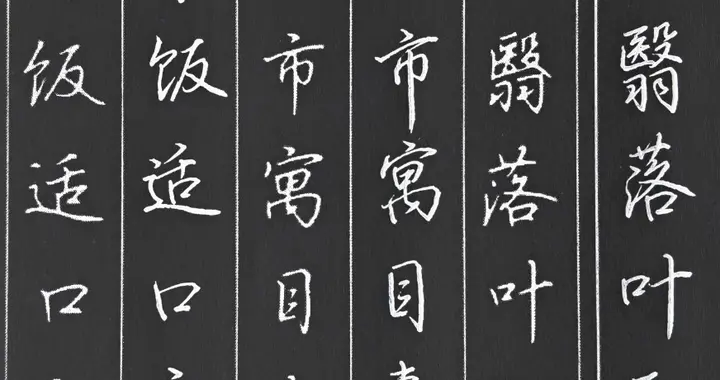 翳落叶
翳落叶
市寓目
市寓目
饭适口
饭适口